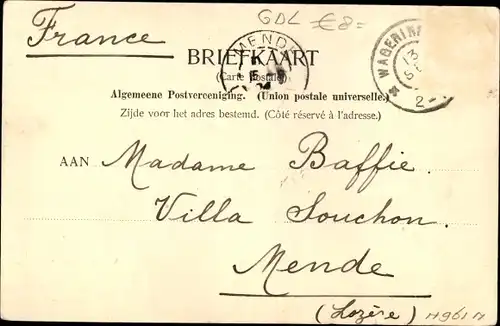 GDL €8=
France
BRIEFKAART
(Carte Postale)
Algemeene Postvereeniging. (Union postale universelle.)
Zijde voor het adres bestemd. (Côté réservé à l'adresse.)
MENDE
13
2-
AAN Madame Baffie.
Villa Souchon.
Mende
(Lozère)